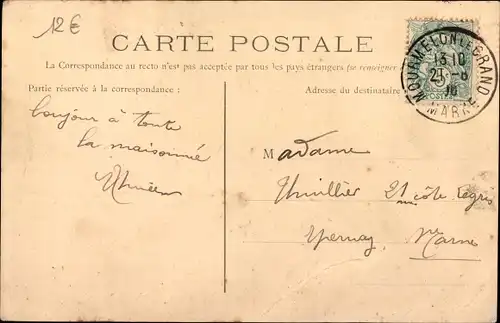 12€
CARTE POSTALE
La Correspondance au recto n'est pas acceptée par tous les pays étrangers (se renseigner
Partie réservée à la correspondance :
Adresse du destinataire
MOURMELON-LE-GRAND
13 10
21 -8
10
MARNE
bonjour à toute
la maisonnée
Madame
Thuillier 21 côte
Epernay, Marne